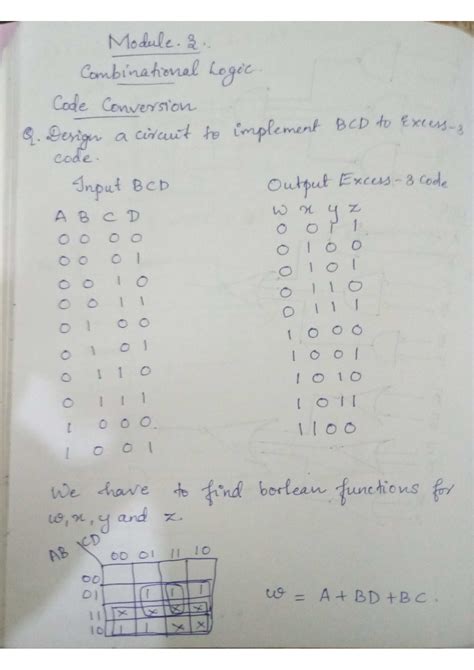 Module. 3.
Combinational Logic.
Code Conversion
Q. Design a circuit to implement BCD to Excess-3
code.
Input BCD Output Excess-3 code
A B C D w x y z
0 0 0 0 0 0 1 1
0 0 0 1 0 1 0 0
0 0 1 0 0 1 0 1
0 0 1 1 0 1 1 0
0 1 0 0 0 1 1 1
0 1 0 1 1 0 0 0
0 1 1 0 1 0 0 1
0 1 1 1 1 0 1 0
1 0 0 0 1 0 1 1
1 0 0 1 1 1 0 0
We have to find borlean functions for
w, x, y and z.
AB CD
00 01 11 10
00
01 1 1 1
11 x x x x
10 1 1 x x
w = A + BD + BC.